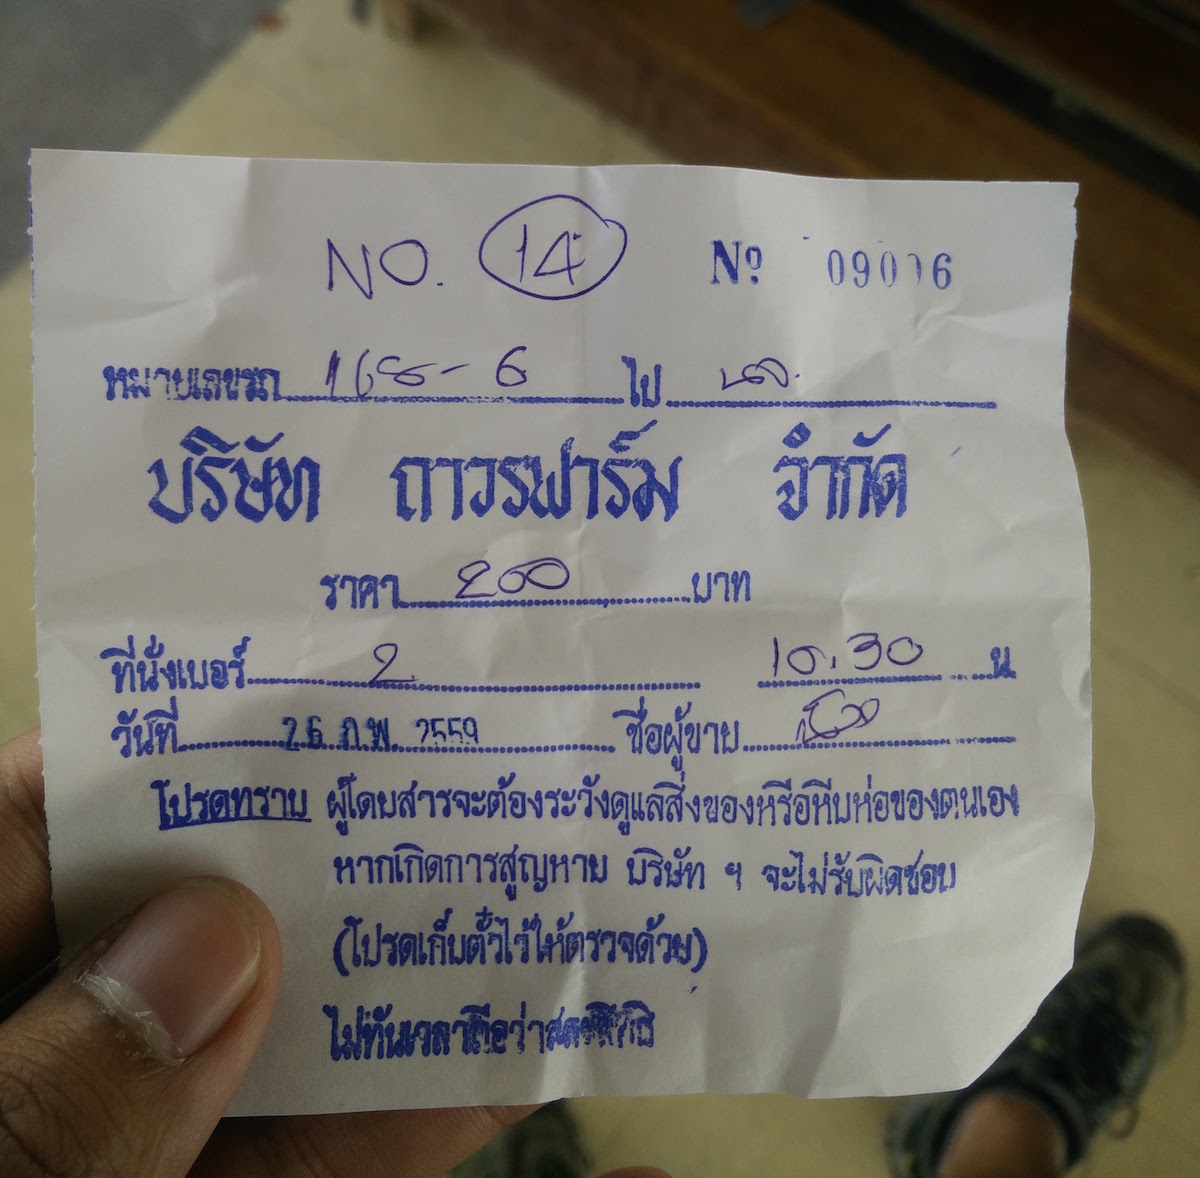 NO. 14 Nº 09006
หมายเลขรถ 168-6 ไป
บริษัท ถาวรฟาร์ม จำกัด
ราคา 200 บาท
ที่นั่งเบอร์ 2 10.30 น
วันที่ 26 ก.พ. 2559 ชื่อผู้ขาย
โปรดทราบ ผู้โดยสารจะต้องระวังดูแลสิ่งของหรือหีบห่อของตนเอง
หากเกิดการสูญหาย บริษัท ฯ จะไม่รับผิดชอบ
(โปรดเก็บตั๋วไว้ให้ตรวจด้วย)
ไม่ทันเวลาถือว่าสละสิทธิ